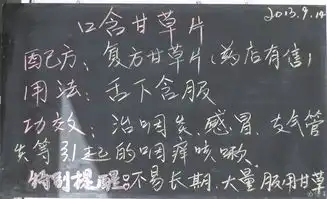 2013.9.14
口含甘草片
配方：复方甘草片（药店有售）
用法：舌下含服
功效：治咽炎、感冒、支气管
炎等引起的咽痒咳嗽。
特别提醒：不易长期、大量服用甘草